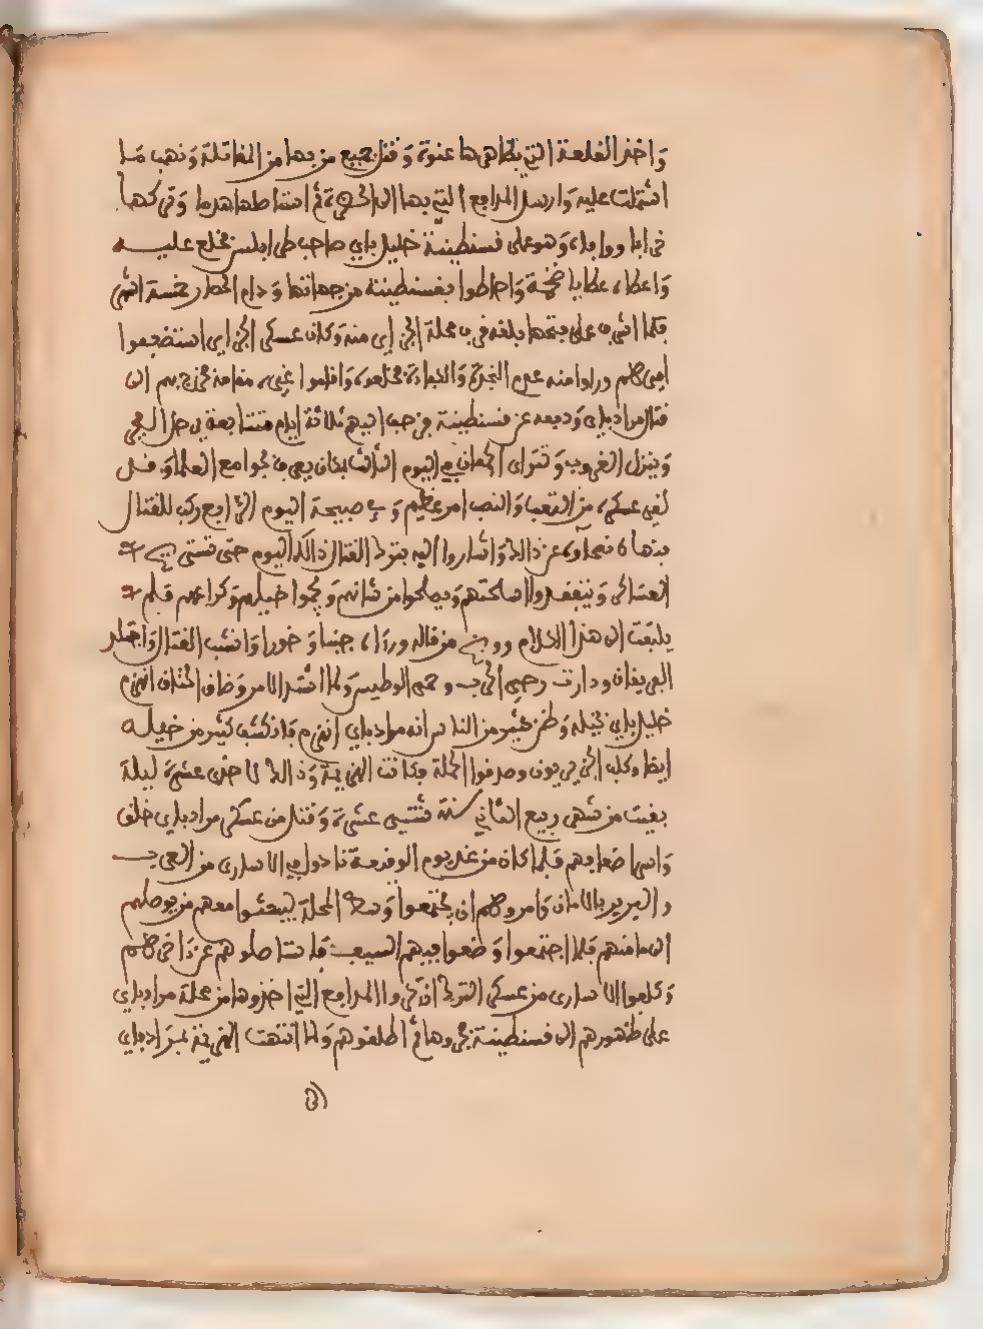 واخذ القلعة التي بظاهرها عنوة وقتل جميع من بها من المقاتلة ونهب ما
اشتملت عليه وارسل المدافع التي بها الى الحضرة ثم استاصلها هدما وتركها
وهو على قسنطينة خليل باي صاحب طرابلس فخلع عليه
واعطاه عطايا ضخمة واحاطوا بقسنطينة من جهاتها ودام الحصار خمسة اشهر
فلما اشرف على فتحها بلغه قرب محلة الجزاير منه وكان عسكر الجزاير استضعفوا
اميرهم وراوا منه عدم النجدة والكفاءة فخلعوه واقاموا غيره مقامه فخرج بهم الى
قتال مراد باي ودفعه عن قسنطينة فزحف اليهم ثلاثة ايام متتابعة يرحل الفجر
وينزل الغروب وتراءى الجمعان في اليوم الثالث بمكان يعرف بجوامع العلما وقد
لقي عسكره من التعب والنصب امر عظيم وفي صبيحة اليوم الرابع ركب للقتال
عن ذالك واشاروا اليه بترك القتال ذالك اليوم حتى تستريح
العساكر ويتفقدوا اسلحتهم ويصلحوا من شانهم ويجموا خيلهم وكراعهم فلم
يلتفت الى هذا الكلام من قاله وراءه جبنا وخورا وانتشب القتال واجتلد
الفريقان ودارت رحى الحرب وحمي الوطيس ولما اشتد الامر وضاق الخناق انهزم
خليل باي بخيله وظن كثير من الناس انه مراد باي انهزم فانكشف كثير من خيله
ايضا وكلب الجزيريون وصدقوا الحملة فكانت الهزيمة وذالك لاحدى عشرة ليلة
بقيت من شهر ربيع الثاني سنة ثنتي عشرة وقتل من عسكر مراد باي خلق
واسر اضعافهم فلما كان من غد يوم الوقعة نادوا في الاسارى من العرب
والبربر بالامان وامروهم ان يجتمعوا وسط المحلة ليبعثوا معهم من يوصلهم
الى مامنهم فلما اجتمعوا وضعوا فيهم السيف فاستاصلوهم عن اخرهم
وكلفوا الاسارى من عسكر الترك ان يجروا المدافع التي اخذوها من محلة مراد باي
على ظهورهم الى قسنطينة فجروها ثم اطلقوهم ولما انتهت الهزيمة بمراد باي